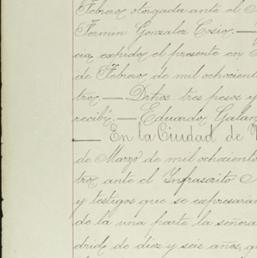 Febrero otorgada ante el
Fermin Gonzalez Cosio.—
cia extendo el presente en
de Febrero de mil ochocien
tro.— Dros tres pesos y
recibí.— Eduardo Galan
— En la Ciudad de
de Marzo de mil ochociento
tro ante el Infrascrito
y testigos que se expresaran
de la una parte la señora
drid de diez y seis años, q